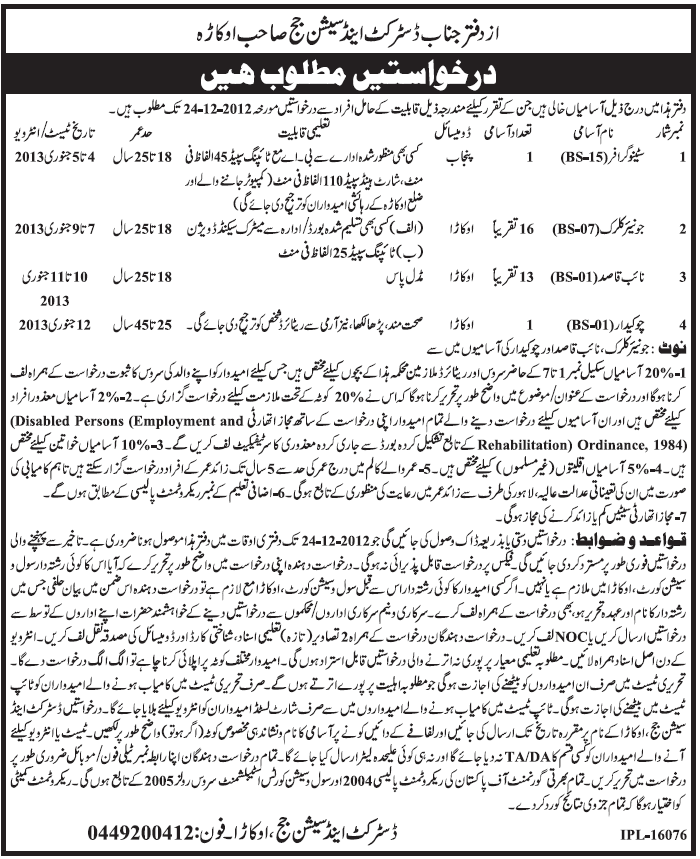 از دفتر جناب ڈسٹرکٹ اینڈ سیشن جج صاحب اوکاڑہ
درخواستیں مطلوب ہیں
دفتر ہذا میں درج ذیل آسامیاں خالی ہیں جن کے تقرر کیلئے مندرجہ ذیل قابلیت کے حامل افراد سے درخواستیں مورخہ 24-12-2012 تک مطلوب ہیں۔
نمبر شمار نام آسامی تعداد آسامی ڈومیسائل تعلیمی قابلیت حد عمر تاریخ ٹیسٹ/انٹرویو
1 سٹینوگرافر (BS-15) 1 پنجاب کسی بھی منظور شدہ ادارے سے بی۔اے مع ٹائپنگ سپیڈ 45 الفاظ فی 18 تا 25 سال 4 تا 5 جنوری 2013
منٹ، شارٹ ہینڈ سپیڈ 110 الفاظ فی منٹ (کمپیوٹر جاننے والے اور
ضلع اوکاڑہ کے رہائشی امیدواران کو ترجیح دی جائے گی)
2 جونیئر کلرک (BS-07) 16 تقریباً اوکاڑا (الف) کسی بھی تسلیم شدہ بورڈ/ادارہ سے میٹرک سیکنڈ ڈویژن 18 تا 25 سال 7 تا 9 جنوری 2013
(ب) ٹائپنگ سپیڈ 25 الفاظ فی منٹ
3 نائب قاصد (BS-01) 13 تقریباً اوکاڑا مڈل پاس 18 تا 25 سال 10 تا 11 جنوری
2013
4 چوکیدار (BS-01) 1 اوکاڑا صحت مند، پڑھا لکھا، نیز آرمی سے ریٹائرڈ شخص کو ترجیح دی جائے گی۔ 25 تا 45 سال 12 جنوری 2013
نوٹ: جونیئر کلرک، نائب قاصد اور چوکیدار کی آسامیوں میں سے
1- 20% آسامیاں سکیل نمبر 1 تا 7 کے حاضر سروس اور ریٹائرڈ ملازمین محکمہ ہذا کے بچوں کیلئے مختص ہیں جس کیلئے امیدوار کو اپنے والد کی سروس کا ثبوت درخواست کے ہمراہ لف
کرنا ہوگا اور درخواست کے عنوان/موضوع میں واضح طور پر تحریر کرنا ہوگا کہ اس نے 20% کوٹہ کے تحت ملازمت کیلئے درخواست گزاری ہے۔ 2- 2% آسامیاں معذور افراد
کیلئے مختص ہیں اور ان آسامیوں کیلئے درخواست دینے والے تمام امیدوار اپنی درخواست کے ساتھ مجاز اتھارٹی (Disabled Persons (Employment and
Rehabilitation) Ordinance, 1984) کے تابع تشکیل کردہ بورڈ سے جاری کردہ معذوری کا سرٹیفکیٹ لف کریں گے۔ 3- 10% آسامیاں خواتین کیلئے مختص
ہیں۔ 4- 5% آسامیاں اقلیتوں (غیر مسلموں) کیلئے مختص ہیں۔ 5- عمر والے کالم میں درج عمر کی حد سے 5 سال تک زائد عمر کے افراد درخواست گزار سکتے ہیں تاہم کامیابی کی
صورت میں ان کی تعیناتی عدالت عالیہ، لاہور کی طرف سے زائد عمر میں رعایت کی منظوری کے تابع ہوگی۔ 6- اضافی تعلیم کے نمبر ریکروٹمنٹ پالیسی کے مطابق ہوں گے۔
7- مجاز اتھارٹی سیٹیں کم یا زائد کرنے کی مجاز ہوگی۔
قواعد و ضوابط: درخواستیں دستی یا بذریعہ ڈاک وصول کی جائیں گی جو 24-12-2012 تک دفتری اوقات میں دفتر ہذا موصول ہونا ضروری ہے۔ تاخیر سے پہنچنے والی
درخواستیں فوری طور پر مسترد کر دی جائیں گی۔ فیکس پر درخواست قابل پذیرائی نہ ہوگی۔ درخواست دہندہ اپنی درخواست میں واضح طور پر تحریر کرے کہ آیا اس کا کوئی رشتہ دار سول و
سیشن کورٹ، اوکاڑا میں ملازم ہے یا نہیں۔ اگر کسی امیدوار کا کوئی رشتہ دار اس سے قبل سول و سیشن کورٹ، اوکاڑا مع لازم ہے تو درخواست دہندہ اس ضمن میں بیان حلفی جس میں
رشتہ دار کا نام اور عہدہ تحریر ہو بھی درخواست کے ہمراہ لف کرے۔ سرکاری و نیم سرکاری اداروں/محکموں سے درخواستیں دینے کے خواہشمند حضرات اپنے اداروں کے توسط سے
درخواستیں ارسال کریں یا NOC لف کریں۔ درخواست دہندگان درخواست کے ہمراہ 2 تصاویر (تازہ) تعلیمی اسناد، شناختی کارڈ اور ڈومیسائل کی مصدقہ نقل لف کریں۔ انٹرویو
کے دن اصل اسناد ہمراہ لائیں۔ مطلوبہ تعلیمی معیار پر پوری نہ اترنے والی درخواستیں قابل استرداد ہوں گی۔ امیدوار مختلف کوٹہ پر اپلائی کرنا چاہے تو الگ الگ درخواست دے گا۔
تحریری ٹیسٹ میں صرف ان امیدواروں کو بیٹھنے کی اجازت ہوگی جو مطلوبہ اہلیت پر پورے اترتے ہوں گے۔ صرف تحریری ٹیسٹ میں کامیاب ہونے والے امیدواران کو ٹائپ
ٹیسٹ میں بیٹھنے کی اجازت ہوگی۔ ٹائپ ٹیسٹ میں کامیاب ہونے والے امیدواروں میں سے صرف شارٹ لسٹڈ امیدواران کو انٹرویو کیلئے بلایا جائے گا۔ درخواستیں ڈسٹرکٹ اینڈ
سیشن جج، اوکاڑا کے نام پر مقررہ تاریخ تک ارسال کی جائیں اور لفافے کے دائیں کونے پر آسامی کا نام و نشاندہی مخصوص کوٹہ (اگر ہو تو) واضح طور پر لکھیں۔ ٹیسٹ یا انٹرویو کیلئے
آنے والے امیدواران کو کسی قسم کا TA/DA نہ دیا جائے گا اور نہ ہی کوئی علیحدہ لیٹر ارسال کیا جائے گا۔ تمام درخواست دہندگان اپنا رابطہ نمبر ٹیلی فون/موبائل ضروری طور پر
درخواست میں تحریر کریں۔ تمام بھرتی گورنمنٹ آف پاکستان کی ریکروٹمنٹ پالیسی 2004 اور سول و سیشن کورٹس اسٹیبلشمنٹ سروس رولز 2005 کے تابع ہوگی۔ ریکروٹمنٹ کمیٹی
کو اختیار ہوگا کہ تمام جزوی نتائج کو رد کر دے۔
ڈسٹرکٹ اینڈ سیشن جج، اوکاڑا۔ فون: 0449200412
IPL-16076